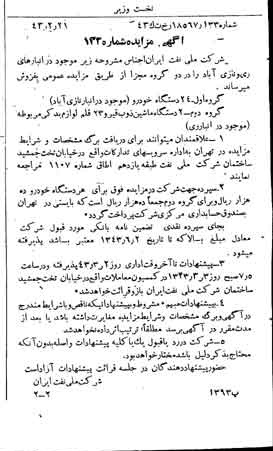 نخست وزیر
شماره ۱۳۳ر۱۸۵۶۷ ۲۱ر۲ر۴۳
آگهی مزایده شماره ۱۳۳
شرکت ملی نفت ایران اجناس مشروحه زیر موجود در انبارهای
ری و نازی آباد را در دو گروه مجزا از طریق مزایده عمومی بفروش
میرساند.
گروه اول ـ ۲۴ دستگاه خودرو (موجود در انبار نازی آباد)
گروه دوم ـ ۲ دستگاه ماشین ذوب قیر و ۲۳ قلم لوازم یدکی مربوطه
(موجود در انبار ری)
۱ ـ علاقمندان میتوانند برای دریافت برگ مشخصات و شرایط
مزایده در تهران به اداره سرویسهای تدارکات واقع در خیابان تخت جمشید
ساختمان شرکت ملی نفت طبقه یازدهم اطاق شماره ۱۱۰۷ مراجعه
نمایند
۲ ـ سپرده جهت شرکت در مزایده فوق برای هر دستگاه خودرو ده
هزار ریال و برای گروه دوم جمعاً ده هزار ریال است که بایستی در تهران
بصندوق حسابداری مرکزی شرکت پرداخت گردد
بجای سپرده نقدی تضمین نامه بانکی مورد قبول شرکت
معادل مبلغ بالا که تا تاریخ ۲ر۹ر۱۳۴۳ معتبر باشد پذیرفته
میشود.
۳ ـ پیشنهادات تا آخر وقت اداری روز ۲ر۳ر۴۳ پذیرفته و در ساعت
۷ صبح روز ۳ر۳ر۱۳۴۳ در کمیسیون معاملات واقع در خیابان تخت جمشید
ساختمان شرکت ملی نفت ایران باز و قرائت خواهد شد
۴ ـ پیشنهادات مبهم و مشروط و پیشنهاداتیکه ناقص و یا شرایط مندرج
در آگهی و برگ مشخصات و شرایط مزایده مغایرت داشته باشد یا بعد از
مدت مقرر در آگهی برسد مطلقاً ترتیب اثر داده نخواهد شد
۵ ـ شرکت در رد یا قبول یک یا کلیه پیشنهادات واصله بدون آنکه
محتاج بذکر دلیل باشد مختار خواهد بود.
حضور پیشنهاد دهندگان در جلسه قرائت پیشنهادات آزاد است
شرکت ملی نفت ایران
پ ۱۳۹۳ ۲ـ۲